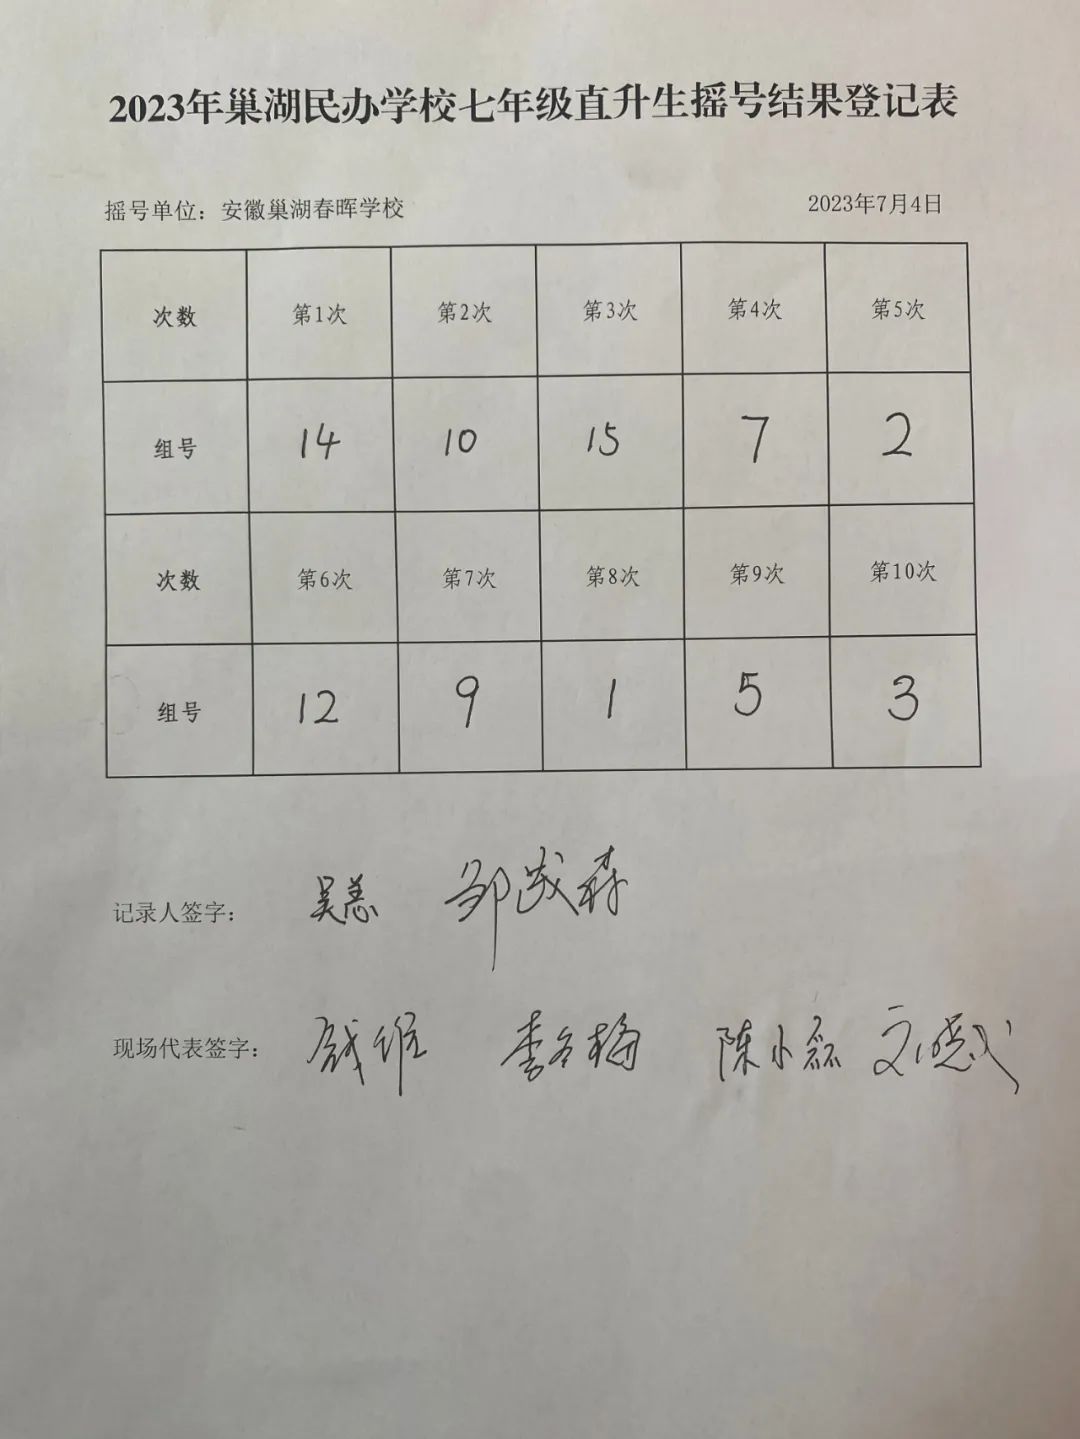 2023年巢湖民办学校七年级直升生摇号结果登记表
摇号单位：安徽巢湖春晖学校 2023年7月4日
次数 第1次 第2次 第3次 第4次 第5次
组号 14 10 15 7 2
次数 第6次 第7次 第8次 第9次 第10次
组号 12 9 1 5 3
记录人签字：
现场代表签字： 钱维 李冬梅 陈小磊